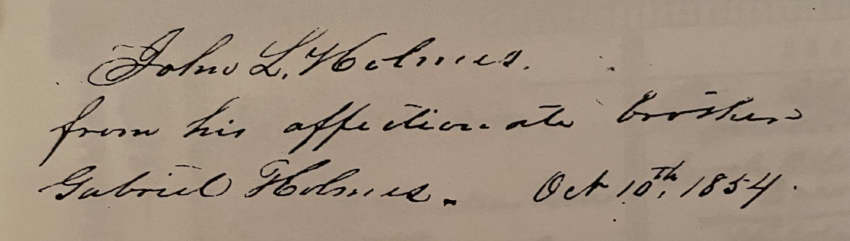 John L. Holmes.
from his affectionate brother
Gabriel Holmes. Oct 10th, 1854.